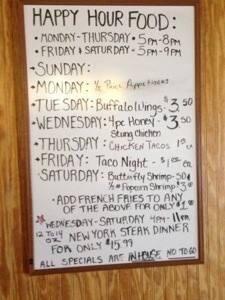 HAPPY HOUR FOOD:
• MONDAY-THURSDAY • 5PM-8PM
• FRIDAY & SATURDAY • 5PM-9PM
• SUNDAY:
• MONDAY: ½ Price Appetizers
TUESDAY: Buffalo Wings • $3.50
WEDNESDAY: 4pc Honey • $3.50
Stung Chicken
THURSDAY: CHICKEN TACOS 1$ ea
FRIDAY: Taco Night - $1 ea
SATURDAY: Butterfly Shrimp-50¢
½# Popcorn Shrimp $3.00
ADD FRENCH FRIES TO ANY
OF THE ABOVE FOR ONLY $1.00
WEDNESDAY-SATURDAY 4PM-11PM
12 TO 14 OZ NEW YORK STEAK DINNER
FOR ONLY $15.99
ALL SPECIALS ARE IN HOUSE NO TO GO